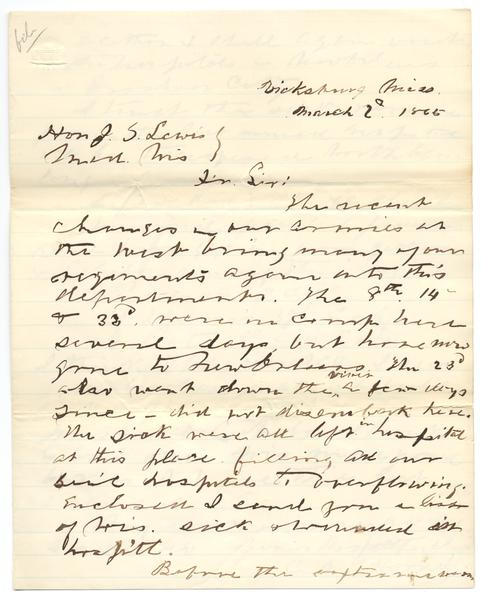 Vicksburg Miss.
March 2d 1865
Hon J. S. Lewis
Mad. Wis
Dr. Sir:
The recent
changes in our armies at
the West bring many of our
regiments again into this
department. The 8th. 14th
& 33d. were in camp here
several days, but have now
gone to New Orleans. The 23d
also went down the river a few days
since - did not disembark here.
The sick were all left in hospital
at this place filling all our
hospitals to overflowing.
Enclosed I send you a list
of Wis. sick & wounded in
hospitl.
Before the